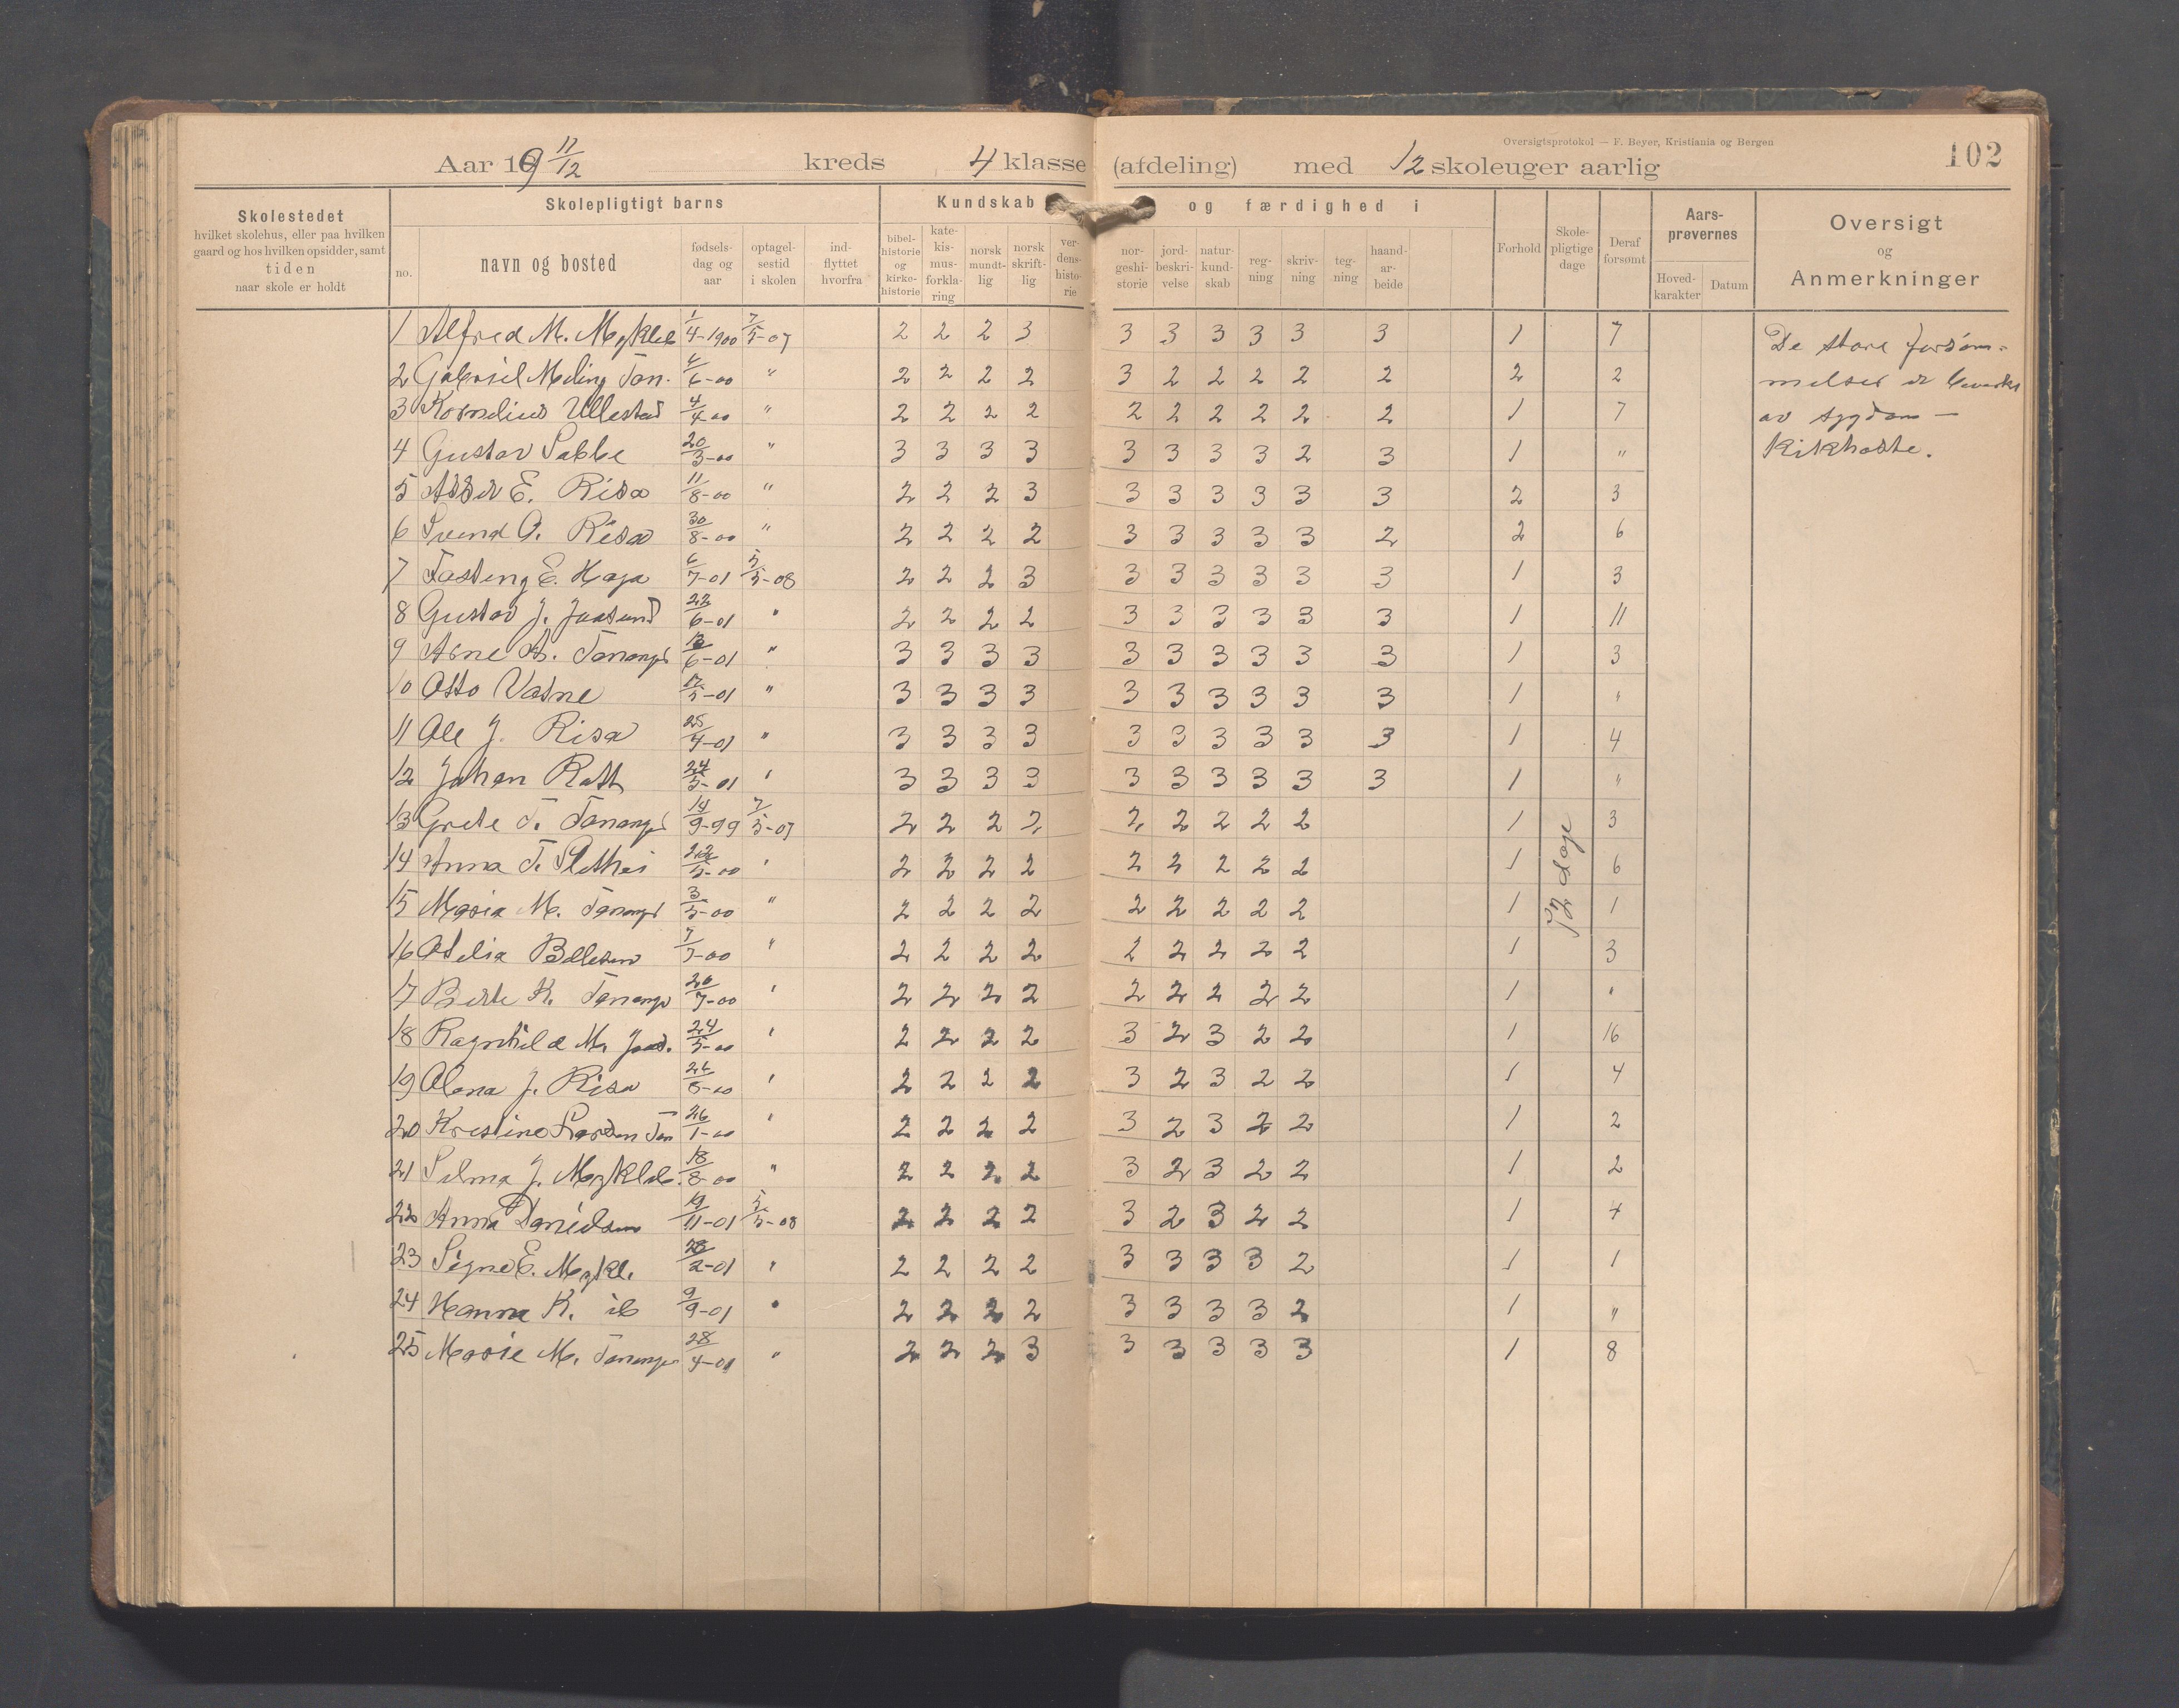 Oversigtsprotokol — F. Beyer, Kristiania og Bergen
102
Aar 19 11/12 kreds 4 klasse (afdeling) med 12 skoleuger aarlig
Skolestedet hvilket skolehus, eller paa hvilken gaard og hos hvilken opsidder, samt tiden naar skole er holdt
Skolepligtigt barns
no. navn og bosted fødselsdag og aar optagelsestid i skolen indflyttet hvorfra
Kundskab og færdighed i
bibelhistorie og kirkehistorie katekismusforklaring norsk mundtlig norsk skriftlig verdenshistorie norgeshistorie jordbeskrivelse naturkundskab regning skrivning tegning haandarbeide
Forhold Skolepligtige dage Deraf forsømt
Aarsprøvernes Hovedkarakter Datum
Oversigt og Anmerkninger
1 Alfred M. Mykleb 1/4-1900 7/5-07 2 2 2 3 3 3 3 3 3 3 1 7
2 Gabriel Meling Tan. 6/6-00 " 2 2 2 2 3 2 2 2 2 2 2 2
3 Kornelius Ullestad 4/4-00 " 2 2 2 2 2 2 2 2 2 2 1 7
4 Gustav Sabbe 20/3-00 " 3 3 3 3 3 3 3 3 2 3 1 "
5 Asser E. Risa 11/8-00 " 2 2 2 3 3 3 3 3 3 3 2 3
6 Svend O. Risa 30/8-00 " 2 2 2 2 3 3 3 3 3 2 2 6
7 Tasteng E. Haga 6/7-01 5/5-08 2 2 2 3 3 3 3 3 3 3 1 3
8 Gustav J. Jaasund 22/6-01 " 2 2 2 2 3 3 3 3 3 3 1 11
9 Arne A. Tananger 6-01 " 3 3 3 3 3 3 3 3 3 3 1 3
10 Otto Vatne 17/5-01 " 3 3 3 3 3 3 3 3 3 3 1 "
11 Ole J. Risa 25/4-01 " 3 3 3 3 3 3 3 3 3 3 1 4
12 Johan Rott 24/5-01 " 3 3 3 3 3 3 3 3 3 3 1 "
13 Grete T. Tananger 14/9-99 7/5-07 2 2 2 2 2 2 2 2 2 1 3
14 Anna T. Slethei 22/5-00 " 2 2 2 2 2 2 2 2 2 1 6
15 Maria M. Tananger 3/5-00 " 2 2 2 2 2 2 2 2 2 1 1
16 Otelia 7/7-00 " 2 2 2 2 2 2 2 2 2 1 3
17 Berte K. Tananger 20/7-00 " 2 2 2 2 2 2 2 2 2 1 "
18 Ragnhild M. Jaas. 24/5-00 " 2 2 2 2 3 2 3 2 2 1 16
19 Olena J. Risa 26/8-00 " 2 2 2 2 3 2 3 2 2 1 4
20 Kristine Larsen Tan 26/1-00 " 2 2 2 2 3 2 3 2 2 1 2
21 Selma J. Mykleb. 18/8-00 " 2 2 2 2 3 2 3 2 2 1 2
22 Anna Danielsen 19/11-01 5/5-08 2 2 2 2 3 2 3 2 2 1 4
23 Signe E. Mykl. 28/2-01 " 2 2 2 2 3 3 3 3 2 1 1
24 Hanna K. ib 9/9-01 " 2 2 2 2 3 3 3 3 2 1 "
25 Marie M. Tananger 28/4-01 " 2 2 2 3 3 3 3 3 3 1 8
72 dage
De store forsøm-
melser er bevirket
av sygdom —
Kikhoste.